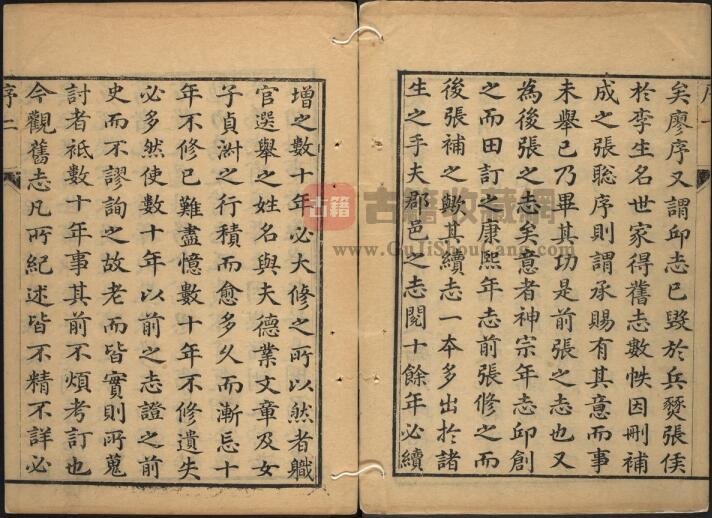 序一
矣廖序又謂邱志已毀於兵燹張侯
於李生名世家得舊志數帙因刪補
成之張聡序則謂承賜有其意而事
未舉已乃畢其功是前張之志也又
為後張之志矣意者神宗年志邱創
之而田訂之康熙年志前張修之而
後張補之歟其續志一本多出於諸
生之手夫郡邑之志閱十餘年必續
增之數十年必大修之所以然者職
官選舉之姓名與夫德業文章及女
子貞淑之行積而愈多久而漸忘十
年不修已難盡憶數十年不修遺失
必多然使數十年以前之志證之前
史而不謬詢之故老而皆實則所蒐
討者祇數十年事其前不煩考訂也
今觀舊志凡所紀述皆不精不詳必
序二
古籍
古籍收藏網
www.GuJiShouCang.com